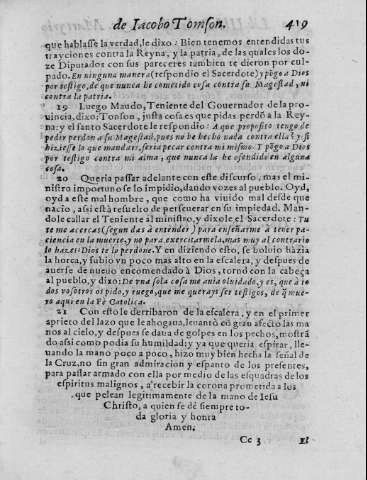 de Iacobo Tomson. 419
que hablasse la verdad, le dixo: Bien tenemos entendidas tus
trayciones contra la Reyna, y la patria, de las quales los do-
ze Diputados con sus pareceres tambien te dieron por cul-
pado. En ninguna manera (respondio el Sacerdote) y pōgo a Dios
por testigo, de que nunca he cometido cosa contra su Magestad, ni
contra la patria.
19 Luego Maudo, Teniente del Governador de la pro-
uincia, dixo; Tonson, justa cosa es que pidas perdō a la Rey-
na: y el santo Sacerdote le respondio: A que proposito tengo de
pedir perdon a su Magestad, pues no he hecho nada contra ella? y si
hiziesse lo que mandais, seria pecar contra mi mismo. Y pōgo a Dios
por testigo contra mi alma, que nunca la he ofendido en alguna
cosa.
20 Queria passar adelante con este discurso, mas el mi-
nistro importuno se lo impidio, dando vozes al pueblo. Oyd,
oyd a este mal hombre, que como ha viuido mal desde que
nacio, assi està resuelto de perseuerar en su impiedad. Man-
dole callar el Teniente al ministro, y dixole el Sacerdote: Tu
te me acercas (segun das à entender) para enseñarme à tener pa-
ciencia en la muerte, y no para exercitarmela, mas muy al contrario
lo hazes: Dios te lo perdone. Y en diziendo esto, se boluio házia
la horca, y subio vn poco mas alto en la escalera, y despues de
auerse de nueuo encomendado à Dios, tornó con la cabeça
al pueblo, y dixo: De vna sola cosa me auia oluidado, y es, que à to-
dos vosotros os pido, y ruego, que me querays ser testigos, de q̃ mue-
ro aqui en la Fè Catolica.
21 Con esto le derribaron de la escalera, y en el primer
aprieto del lazo que le ahogaua, leuantò en gran afecto las ma-
nos al cielo, y despues se daua de golpes en los pechos, mostrā
do assi como podia su humildad; y ya que queria espirar, lle-
uando la mano poco a poco, hizo muy bien hecha la señal de
la Cruz, no sin gran admiracion y espanto de los presentes,
para passar armado con ella por medio de las esquadras de los
espiritus malignos, a recebir la corona prometida a los
que pelean legitimamente de la mano de Iesu
Christo, a quien se dé siempre to-
da gloria y honra
Amen.
Cc 3 El